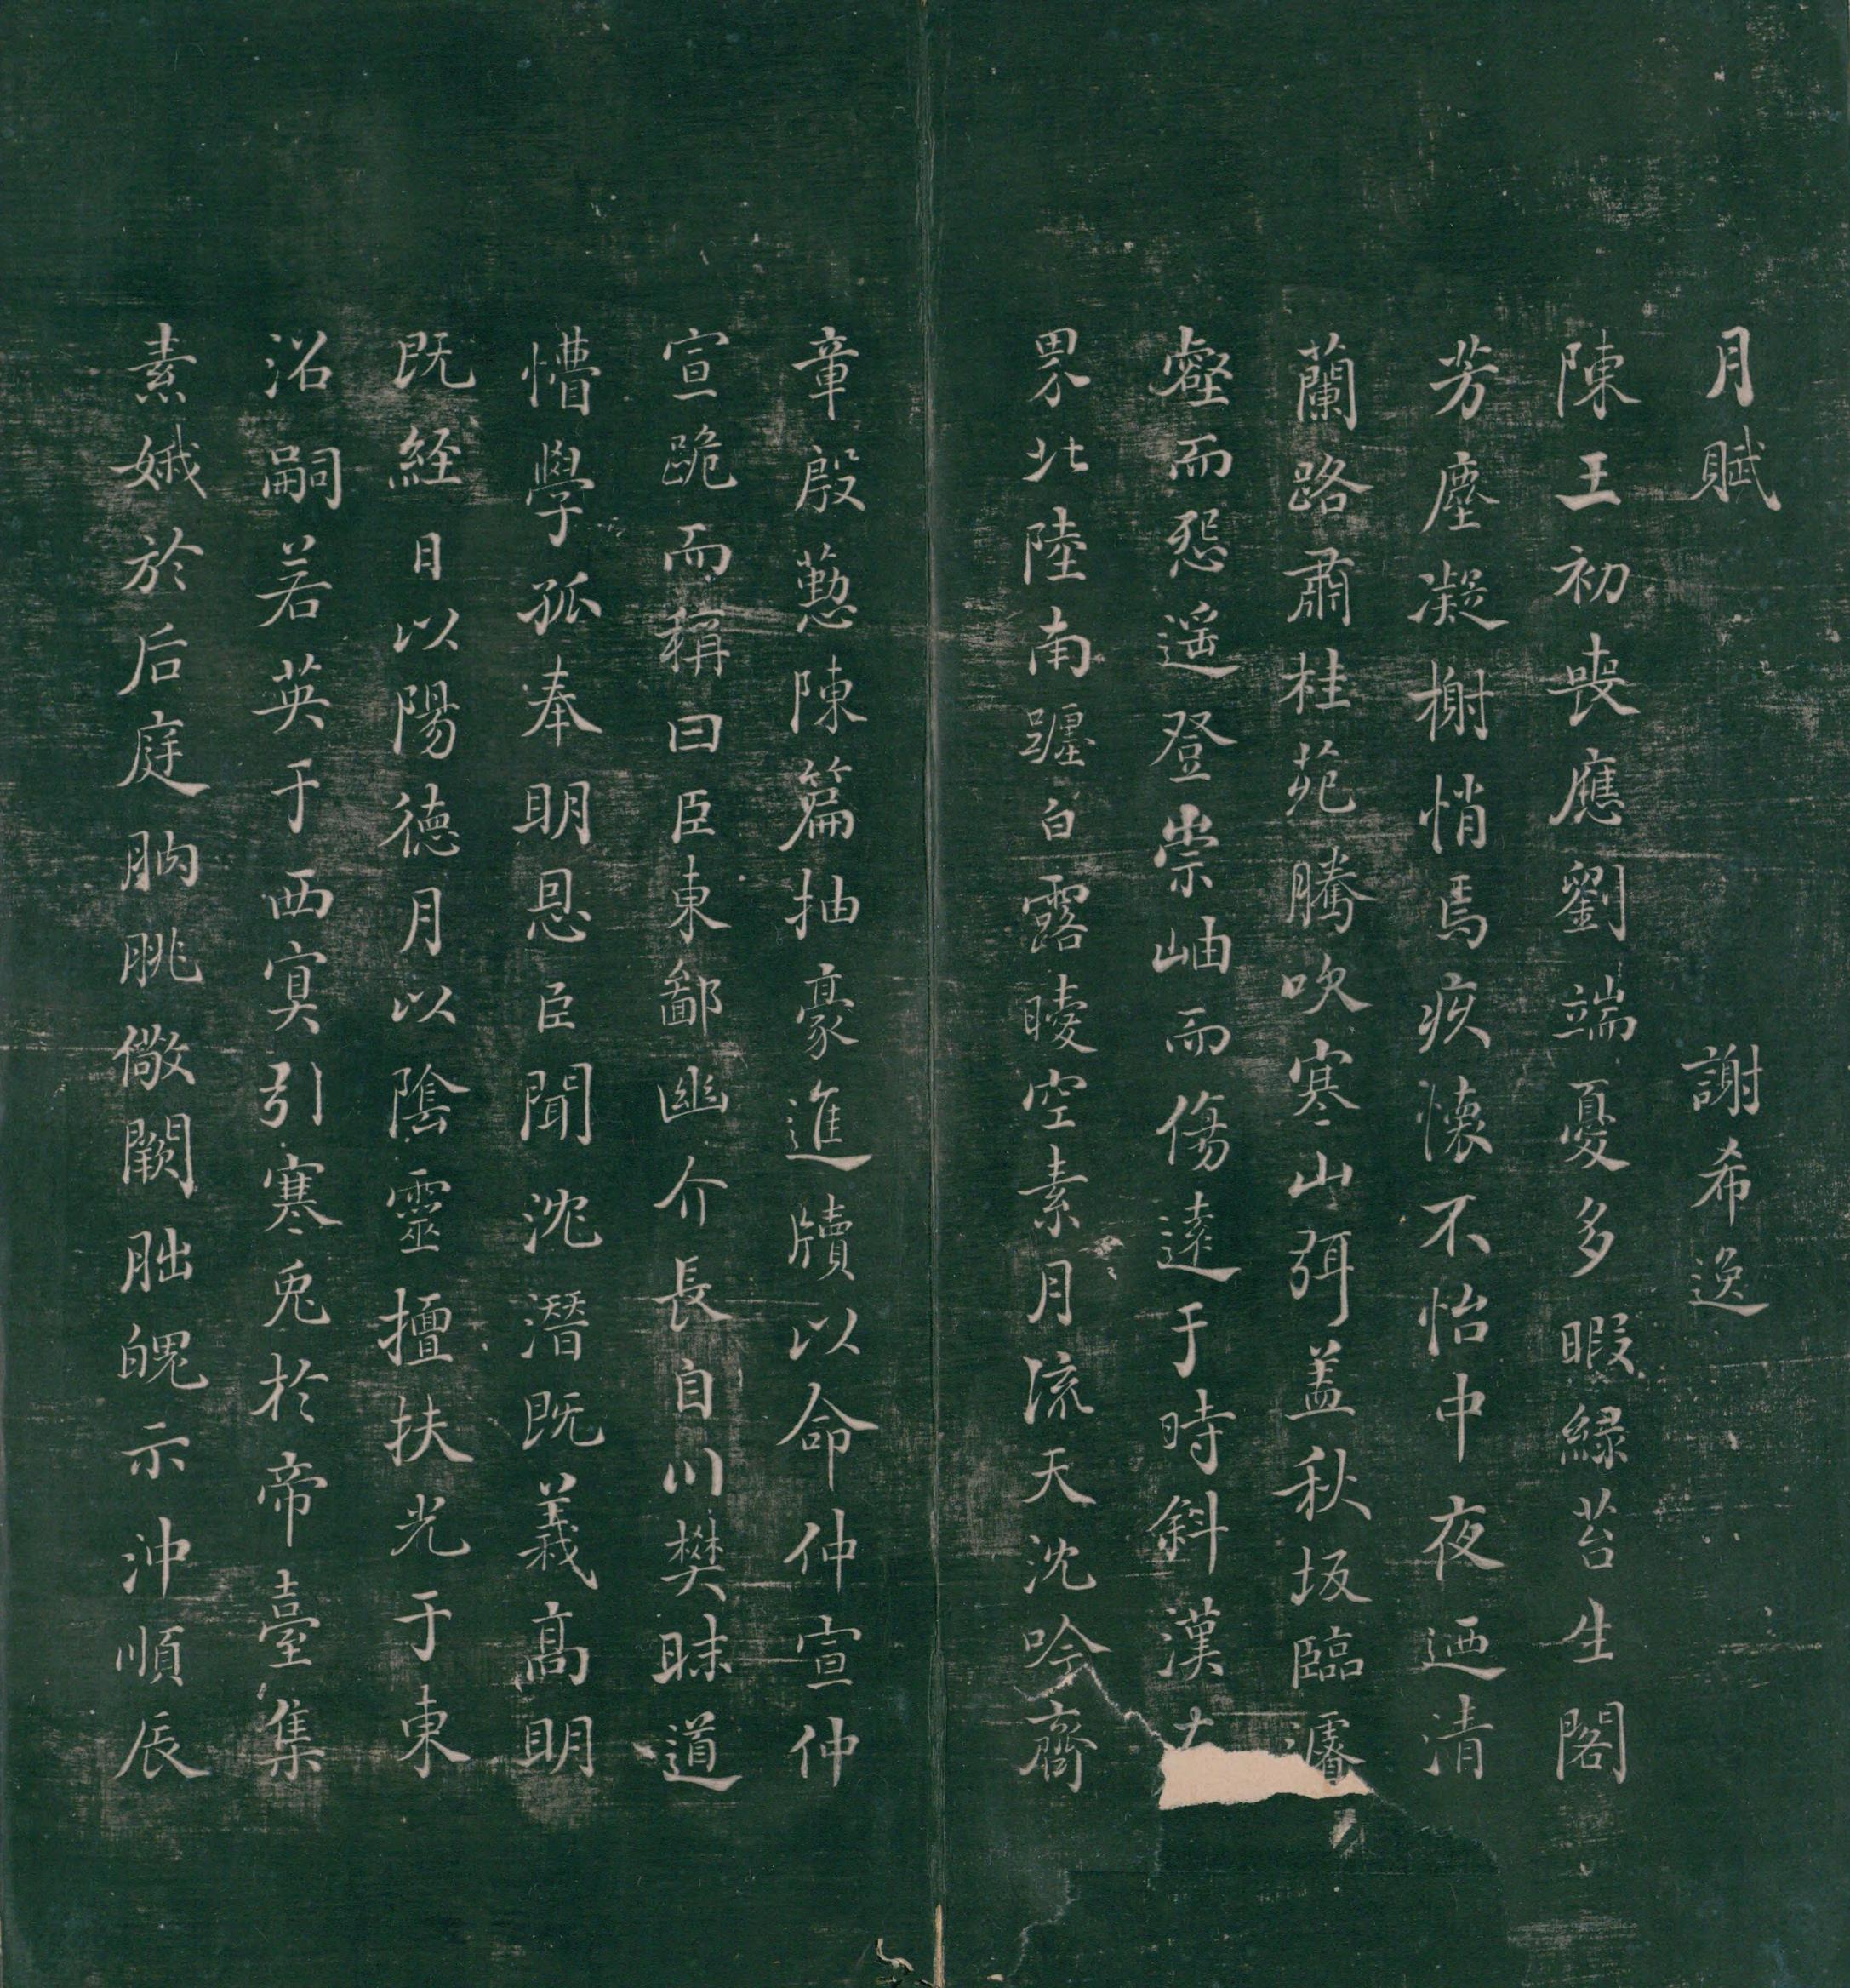 月賦 謝希逸
陳王初喪應劉端憂多暇綠苔生閣
芳塵凝榭悄焉疚懷不怡中夜迺清
蘭路肅桂苑騰吹寒山弭盖秋坂臨濬
壑而怨遥登崇岫而傷遠于時斜漢左
界北陸南躔白露曖空素月流天沈吟齊
章殷懃陳篇抽豪進牘以命仲宣仲
宣跪而稱曰臣東鄙幽介長自川樊昧道
懵學孤奉明恩臣聞沈潛既義高明
既經日以陽德月以陰靈擅扶光于東
沼嗣若英于西冥引寒兎於帝臺集
素娥於后庭朒朓儆闕朏魄示沖順辰